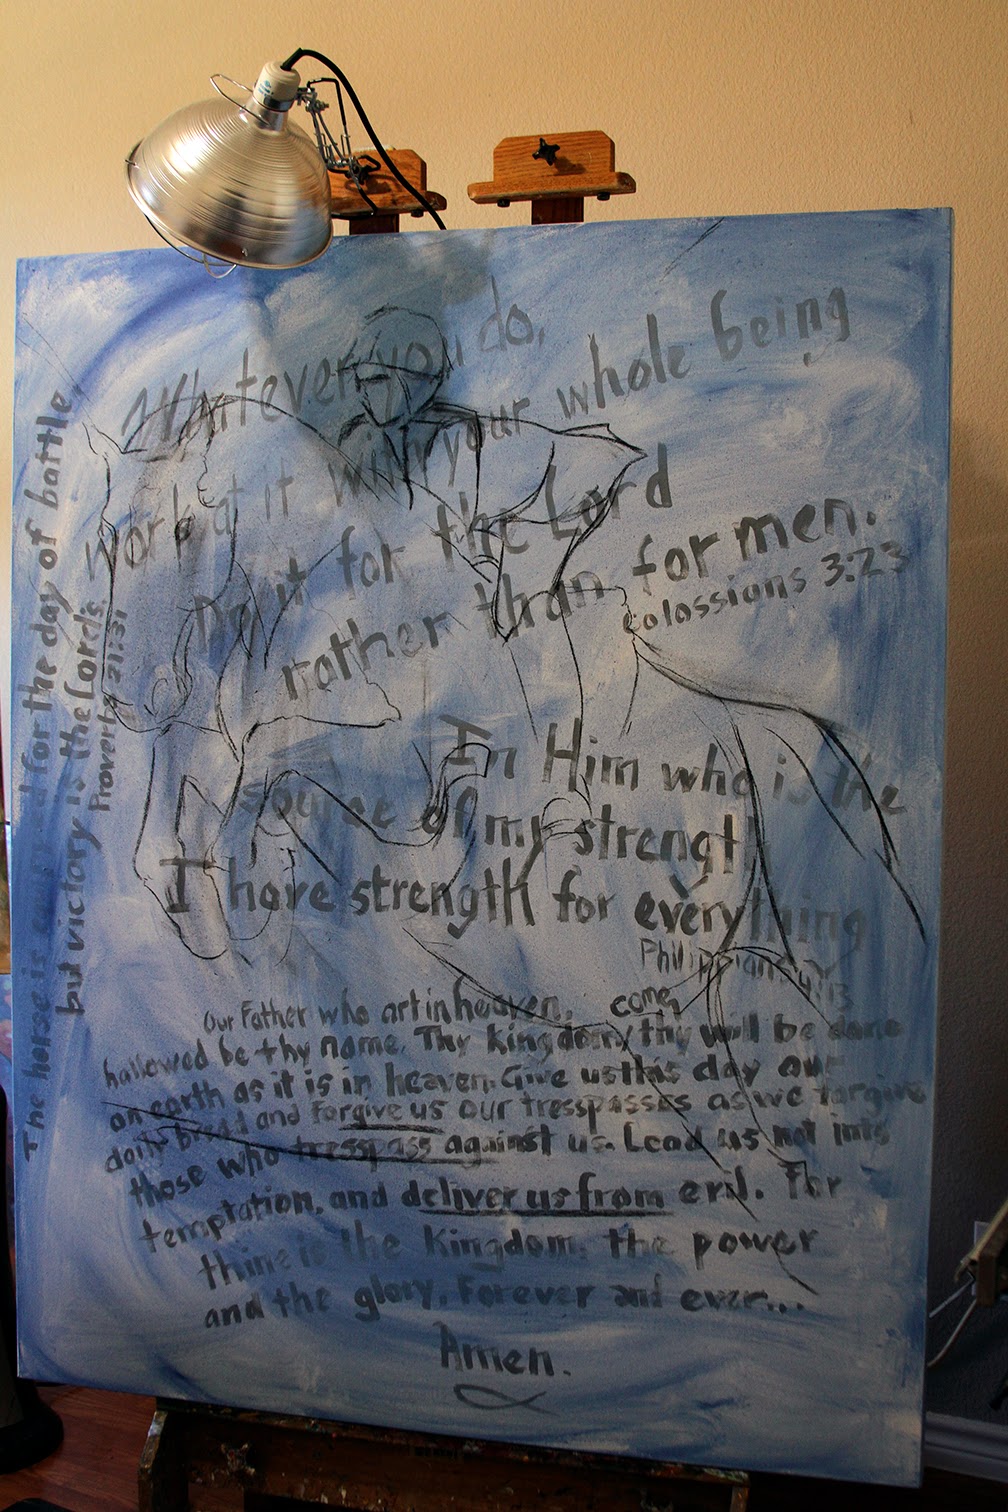 Whatever you do,
Work at it with your whole being
Do it for the Lord
rather than for men.
Colossians 3:23
The horse is prepared for the day of battle
but victory is the Lord's
Proverbs 21:31
In Him who is the
source of my strength
I have strength for everything
Philippians 4:13
Our Father who art in heaven, come,
hallowed be thy name. Thy Kingdom thy will be done
on earth as it is in heaven. Give us this day our
daily bread and forgive us our tresspasses as we forgive
those who tresspass against us. Lead us not into
temptation, and deliver us from evil. For
thine is the Kingdom, the power
and the glory, Forever and ever...
Amen.